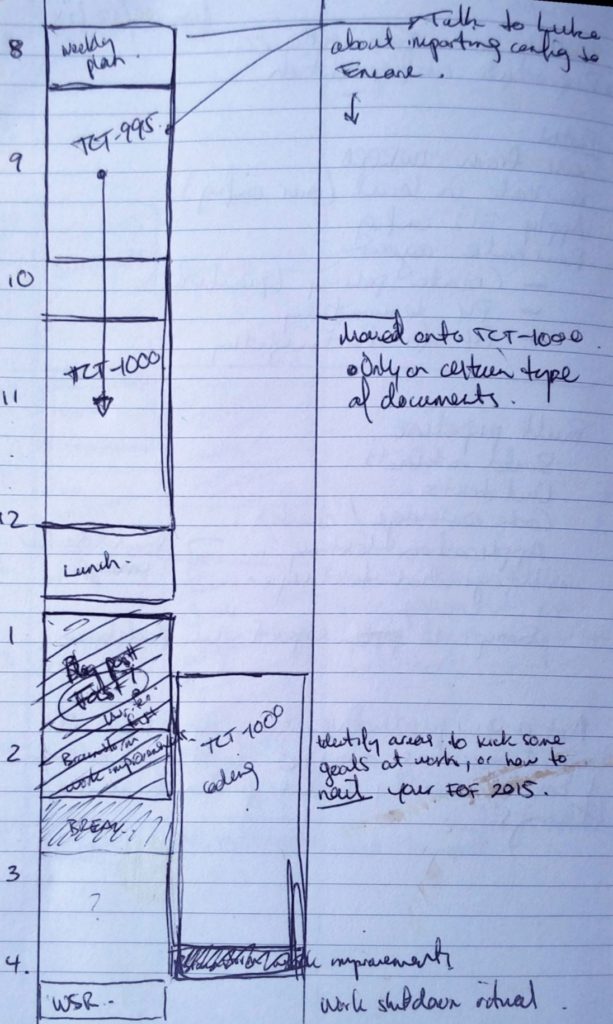 8
weekly
plan.
Talk to Luke
about importing config to
TCT-995
9
10
Moved onto TCT-1000
• Only on certain type
of documents.
TCT-1000
11
12
Lunch.
1
Blog post
TCT-1000
coding
2
Brainstorm
work improvement
Identify areas to kick some
goals at work, or how to
nail your FOF 2015.
BREAK
3
?
4.
improvements
WSR..
Work shutdown ritual.